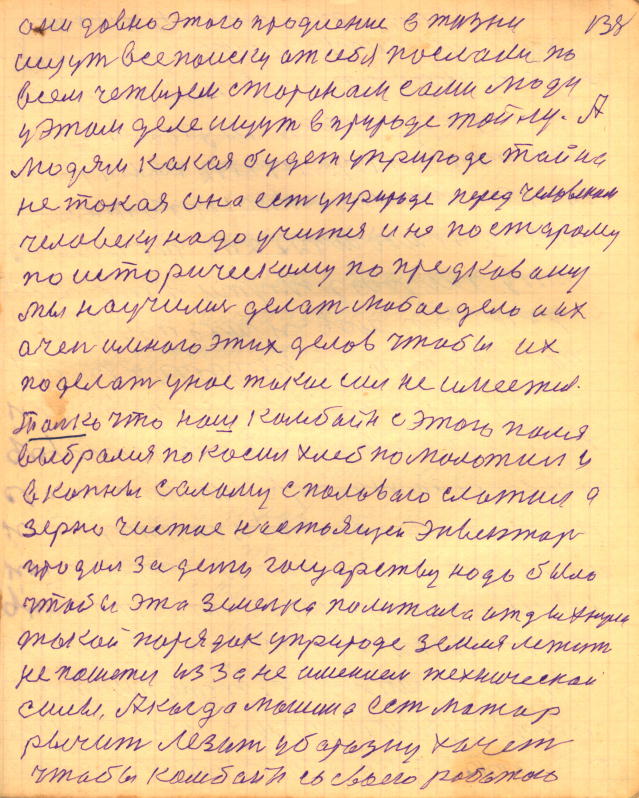 138
они довно этого продление в жизни
ищут все поиски от себя послали по
всем четырем старонам сами люди
у этом деле ищут в природе тойну. А
людям какая будет уприроде тайна
не токая она ест уприроде перед человеком
человеку надо учится и не по старому
по историческому по предковому
мы научился делат любое дело а их
очен имного этих делов чтобы их
поделат унас такие сил не имеется.
Толко что наш комбайн с этого поля
выбрался покосил хлеб помолотил и
в копны салому с половаю сложил а
зерно чистае настоящей
продал за денги государству надо было
чтобы эта земелка полижала отдыхнула
такой порядок уприроде земля лежит
не пашется из за не имением технической
силы. А когда машина ест матор
рычит лезит у баразну хочет
чтобы комбайн со своего работаю